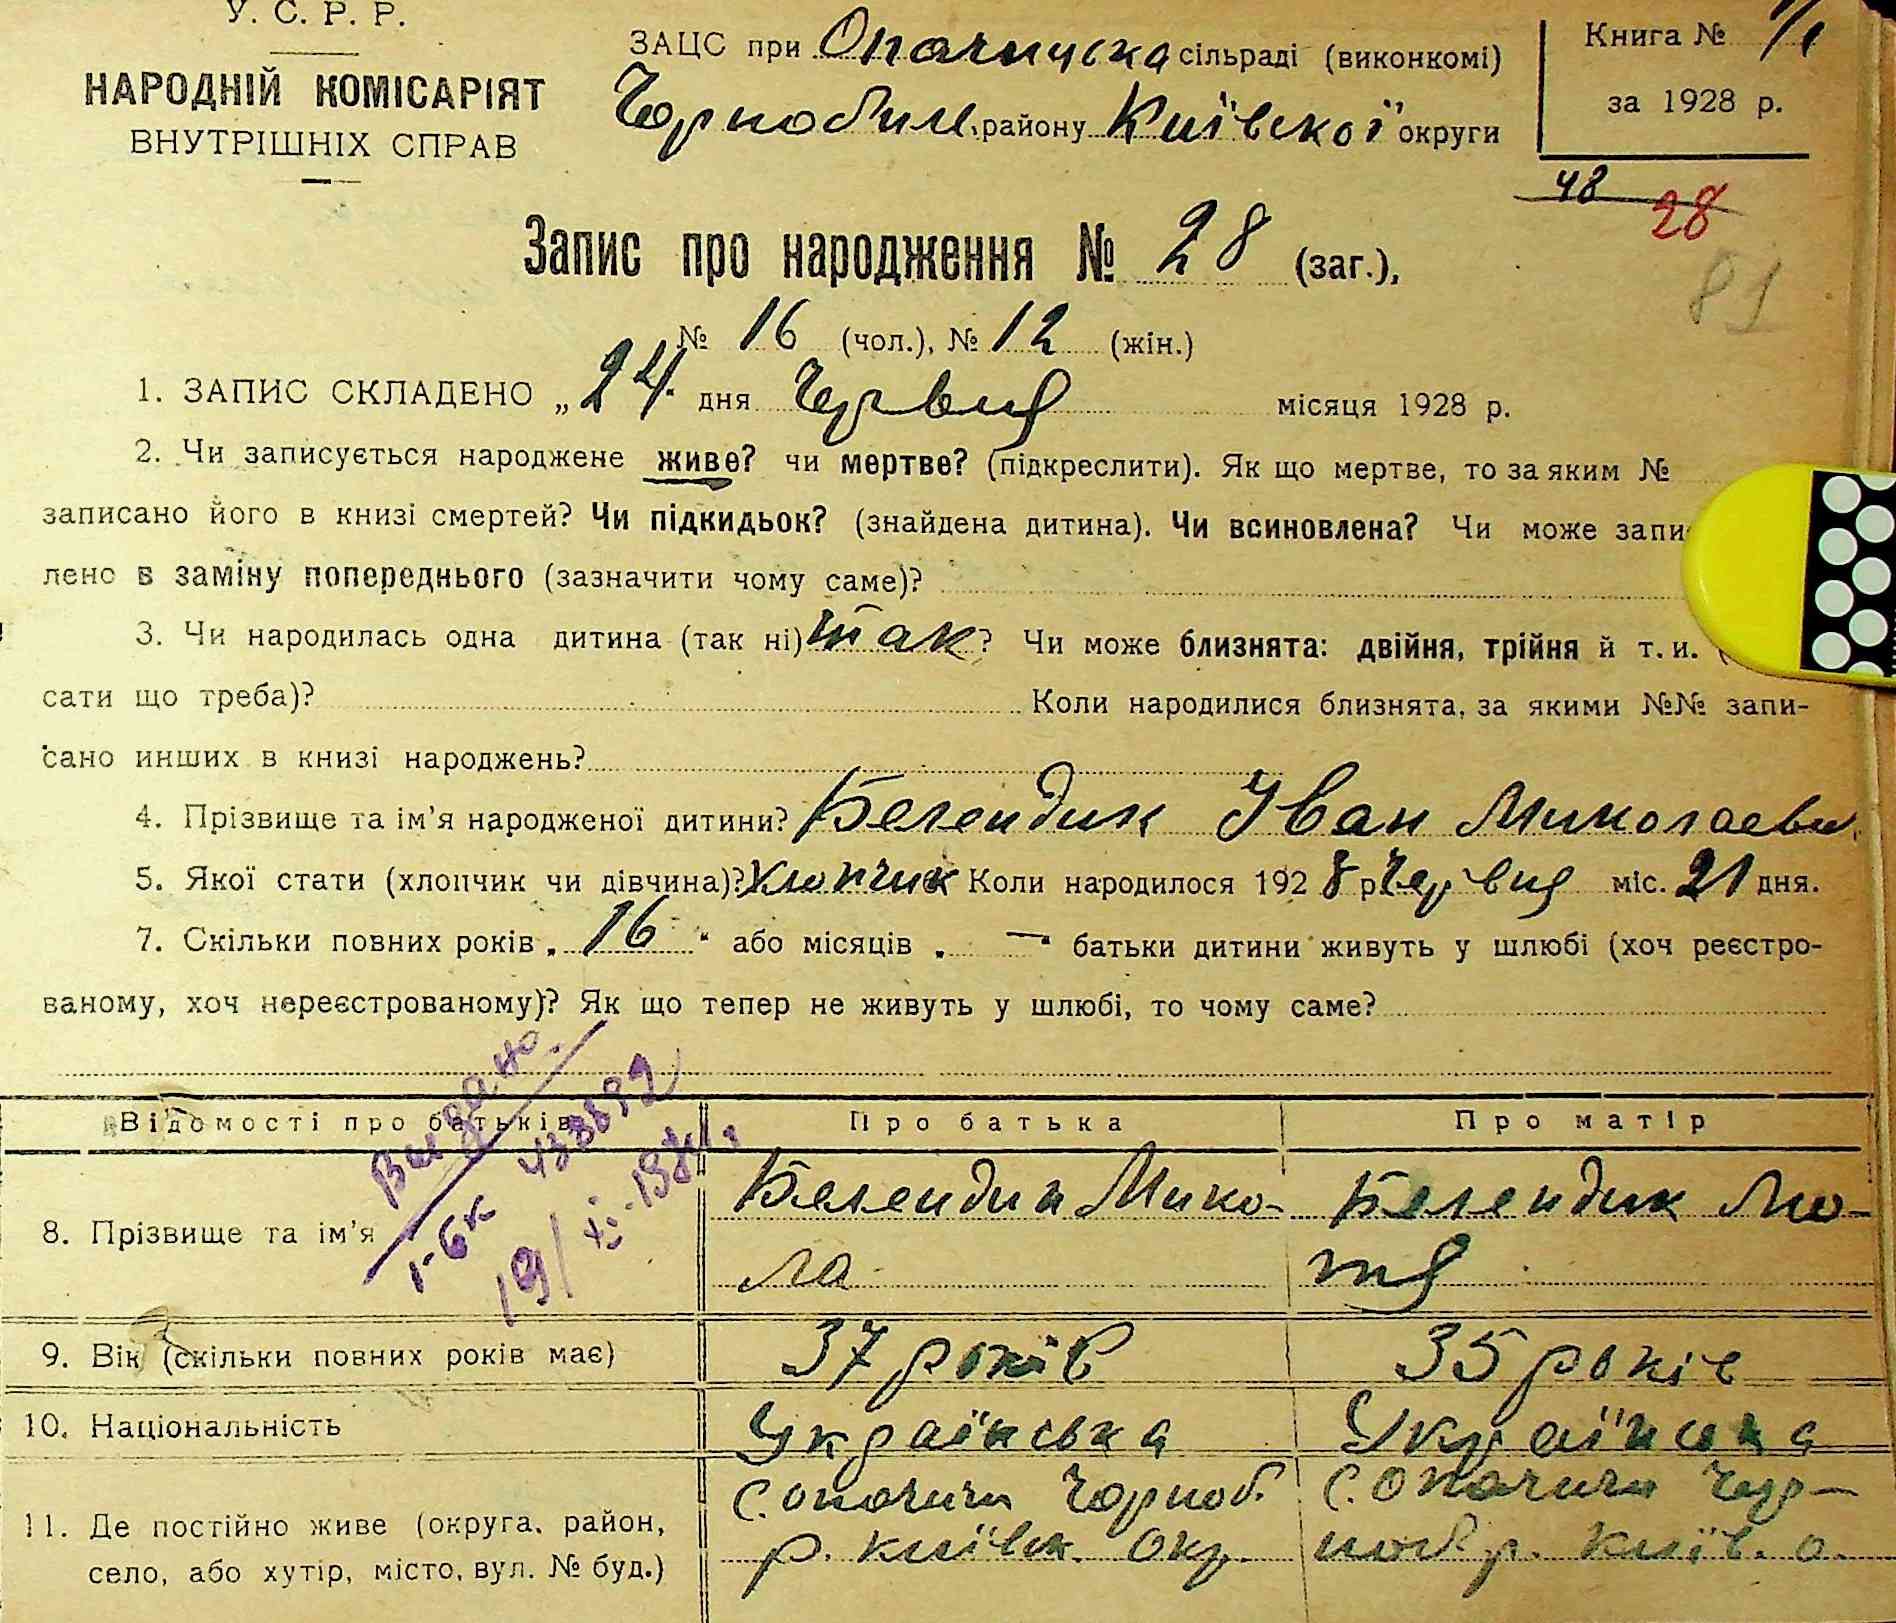 У. С. Р. Р.
НАРОДНІЙ КОМІСАРІЯТ
ВНУТРІШНІХ СПРАВ
ЗАЦС при Опачицька сільраді (виконкомі)
Чорнобил. району Київської округи
Книга №
за 1928 р.
48 28
81
Запис про народження № 28 (заг.),
№ 16 (чол.), № 12 (жін.)
1. ЗАПИС СКЛАДЕНО „24 дня Червця місяця 1928 р.
2. Чи записується народжене живе? чи мертве? (підкреслити). Як що мертве, то за яким №
записано його в книзі смертей? Чи підкидьок? (знайдена дитина). Чи всиновлена? Чи може запи
лено в заміну попереднього (зазначити чому саме)?
3. Чи народилась одна дитина (так ні) так? Чи може близнята: двійня, трійня й т. и. (
сати що треба)? Коли народилися близнята, за якими №№ запи-
сано инших в книзі народжень?
4. Прізвище та ім'я народженої дитини? Белендик Іван Миколаеви
5. Якої стати (хлопчик чи дівчина)? Хлопчик Коли народилося 1928 р. Червця міс. 21 дня.
7. Скільки повних років „16“ або місяців „—“ батьки дитини живуть у шлюбі (хоч реєстро-
ваному, хоч нереєстрованому)? Як що тепер не живуть у шлюбі, то чому саме?
Видано
І-БК 433892
Відомості про батьків Про батька Про матір
8. Прізвище та ім'я Белендик Мико- Белендик Мо-
ла тя
9. Вік (скільки повних років має) 37 років 35 років
10. Національність Українська Українська
с. Опачичи Чорноб. с. Опачичи Чор-
11. Де постійно живе (округа, район, р. київск. окр. ноб р. Київ. о.
село, або хутір, місто, вул. № буд.)